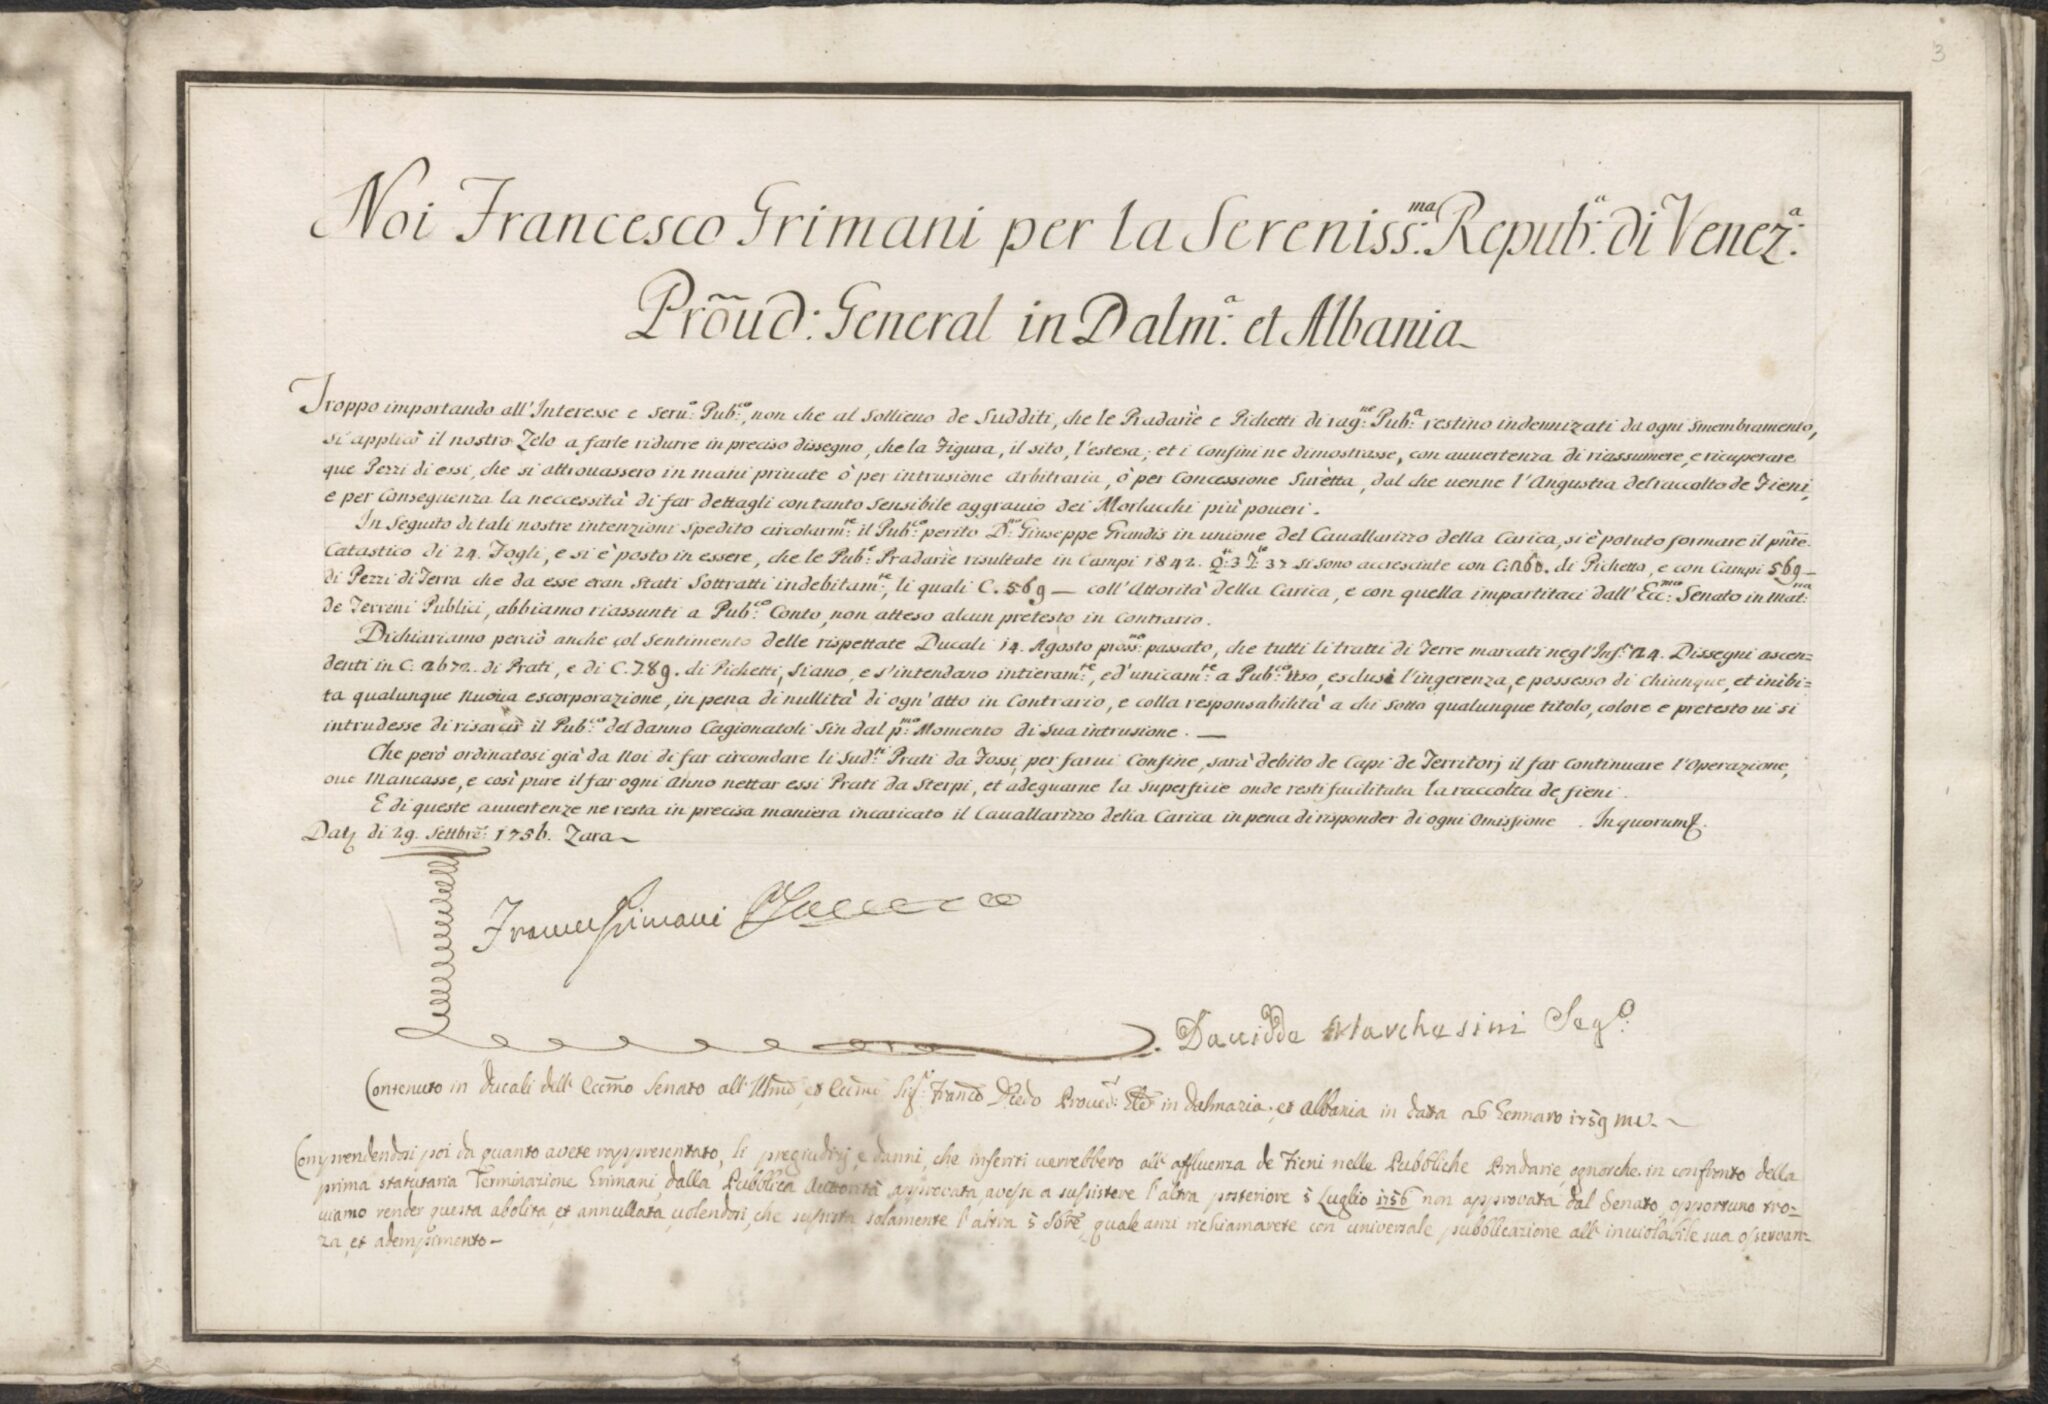 3
Noi Francesco Grimani per la Sereniss:ma Repub:a di Venez:a
Proud: General in Dalm:a et Albania
Troppo importando all'Interesse e seru:o Pub:co, non che al sollieuo de Sudditi, che le Pradarie e Pichetti di rag:ne Pub:a restino indennizati da ogni smembramento,
si applicò il nostro Zelo a farle ridurre in preciso dissegno, che la Figura, il sito, l'estesa, et i Confini ne dimostrasse, con auuertenza di riassumere, e ricuperare
que Pezzi di essi, che si attrouassero in mani priuate ò per intrusione arbitraria, ò per Concessione Surètta, dal che uenne l'Angustia del raccolto de Fieni,
e per conseguenza la neccessità di far dettagli con tanto sensibile aggrauio dei Morlacchi più poueri.
In seguito di tali nostre intenzioni spedito circolarm:te il Pub:co perito D:no Giuseppe Grandis in unione del Cauallarizzo della Carica, si è potuto formare il pñte
Catastico di 24. Fogli, e si è posto in essere, che le Pub:e Pradarie risultate in Campi 1842. Q:e 3 T:le 37 si sono accresciute con C: 260. di Pichetto, e con Campi 569
di Pezzi di Terra che da esse eran stati Sottratti indebitam:te, li quali C. 569 — coll'Attorità della Carica, e con quella impartitaci dall'Ecc:mo Senato in Mat:ria
de Terreni Publici, abbiamo riassunti a Pub:co Conto, non atteso alcun pretesto in Contrario.
Dichiariamo perciò anche col sentimento delle rispettate Ducali 14. Agosto pross:mo passato, che tutti li tratti di Terre marcati negl'Inf:ti 24. Dissegni ascen-
denti in C. 2672. di Prati, e di C. 789. di Pichetti, siano, e s'intendano intieram:te, ed'unicam:te a Pub:co uso, esclusi l'ingerenza, e possesso di chiunque, et inibi=
ta qualunque nuoua escorporazione, in pena di nullità di ogn'atto in Contrario, e colla responsabilità a chi sotto qualunque titolo, colore e pretesto ui si
intrudesse di risarcir il Pub:co del danno Cagionatoli sin dal p:mo Momento di sua intrusione. —
Che però ordinatosi già da Noi di far circondare li sud:ti Prati da Fossi, per farui Confine, sarà debito de Capi de Territorj il far continuare l'Operazione,
oue Mancasse, e così pure il far ogni Anno nettar essi Prati da sterpi, et adeguarne la superficie onde resti facilitata la raccolta de fieni.
E di queste auuertenze ne resta in precisa maniera incaricato il Cauallarizzo della Carica in pena di risponder di ogni Omissione. In quorum
Dat di 29. Settbre: 1756. Zara
Franc Grimani
Dauidde Marchesini Seg:o
Contenuto in Ducali dell' Eccmo Senato all' Illmo, et Eccmo Sig:r Franco Diedo Proued:r in Dalmazia, et Albania in data 26 Gennaro 1759 mv.
Comprendendosi poi da quanto avete rappresentato, li pregiudizj, e danni, che inferiti uerrebbero all' affluenza de Fieni nelle Pubbliche Pradarie, ognorche in confronto della
prima statutaria Terminazione Grimani, dalla Pubblica Autorità approvata, avesse a sussistere l'altra posteriore 5 Luglio 1756 non approvata dal Senato, opportuno tro=
uiamo render questa abolita, et annullata, uolendosi, che sussista solamente l'altra quale anzi richiamarete con universale pubblicazione all' inuiolabile sua osservan=
za, et adempimento